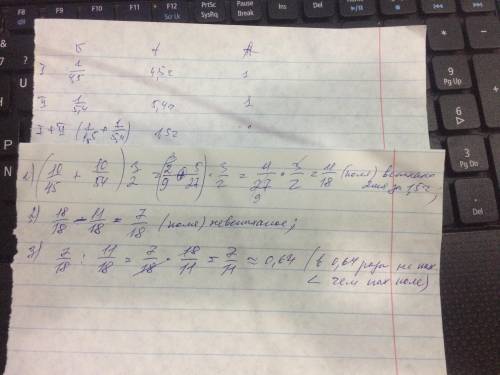 F8
F9
F10
F11
F12
PrtSc
SysRq
Pause
Break
Ins
Del
б
t
A
I 1/4,5 4,5ч 1
II 1/5,4 5,4ч 1
I + II (1/4,5 + 1/5,4) 1,5ч
9
Pg Up
6
3
Pg Dn
P
N
1) (10/45 + 10/54) 3/2 = (2/9 + 5/27) · 3/2 = 11/27 · 3/2 = 11/18 (поля) вспахано
за 1,5ч
2) 18/18 - 11/18 = 7/18 (поле) невспаханое;
3) 7/18 : 11/18 = 7/18 · 18/11 = 7/11 ≈ 0,64 (в 0,64 раза не пах.
< чем пах поле)